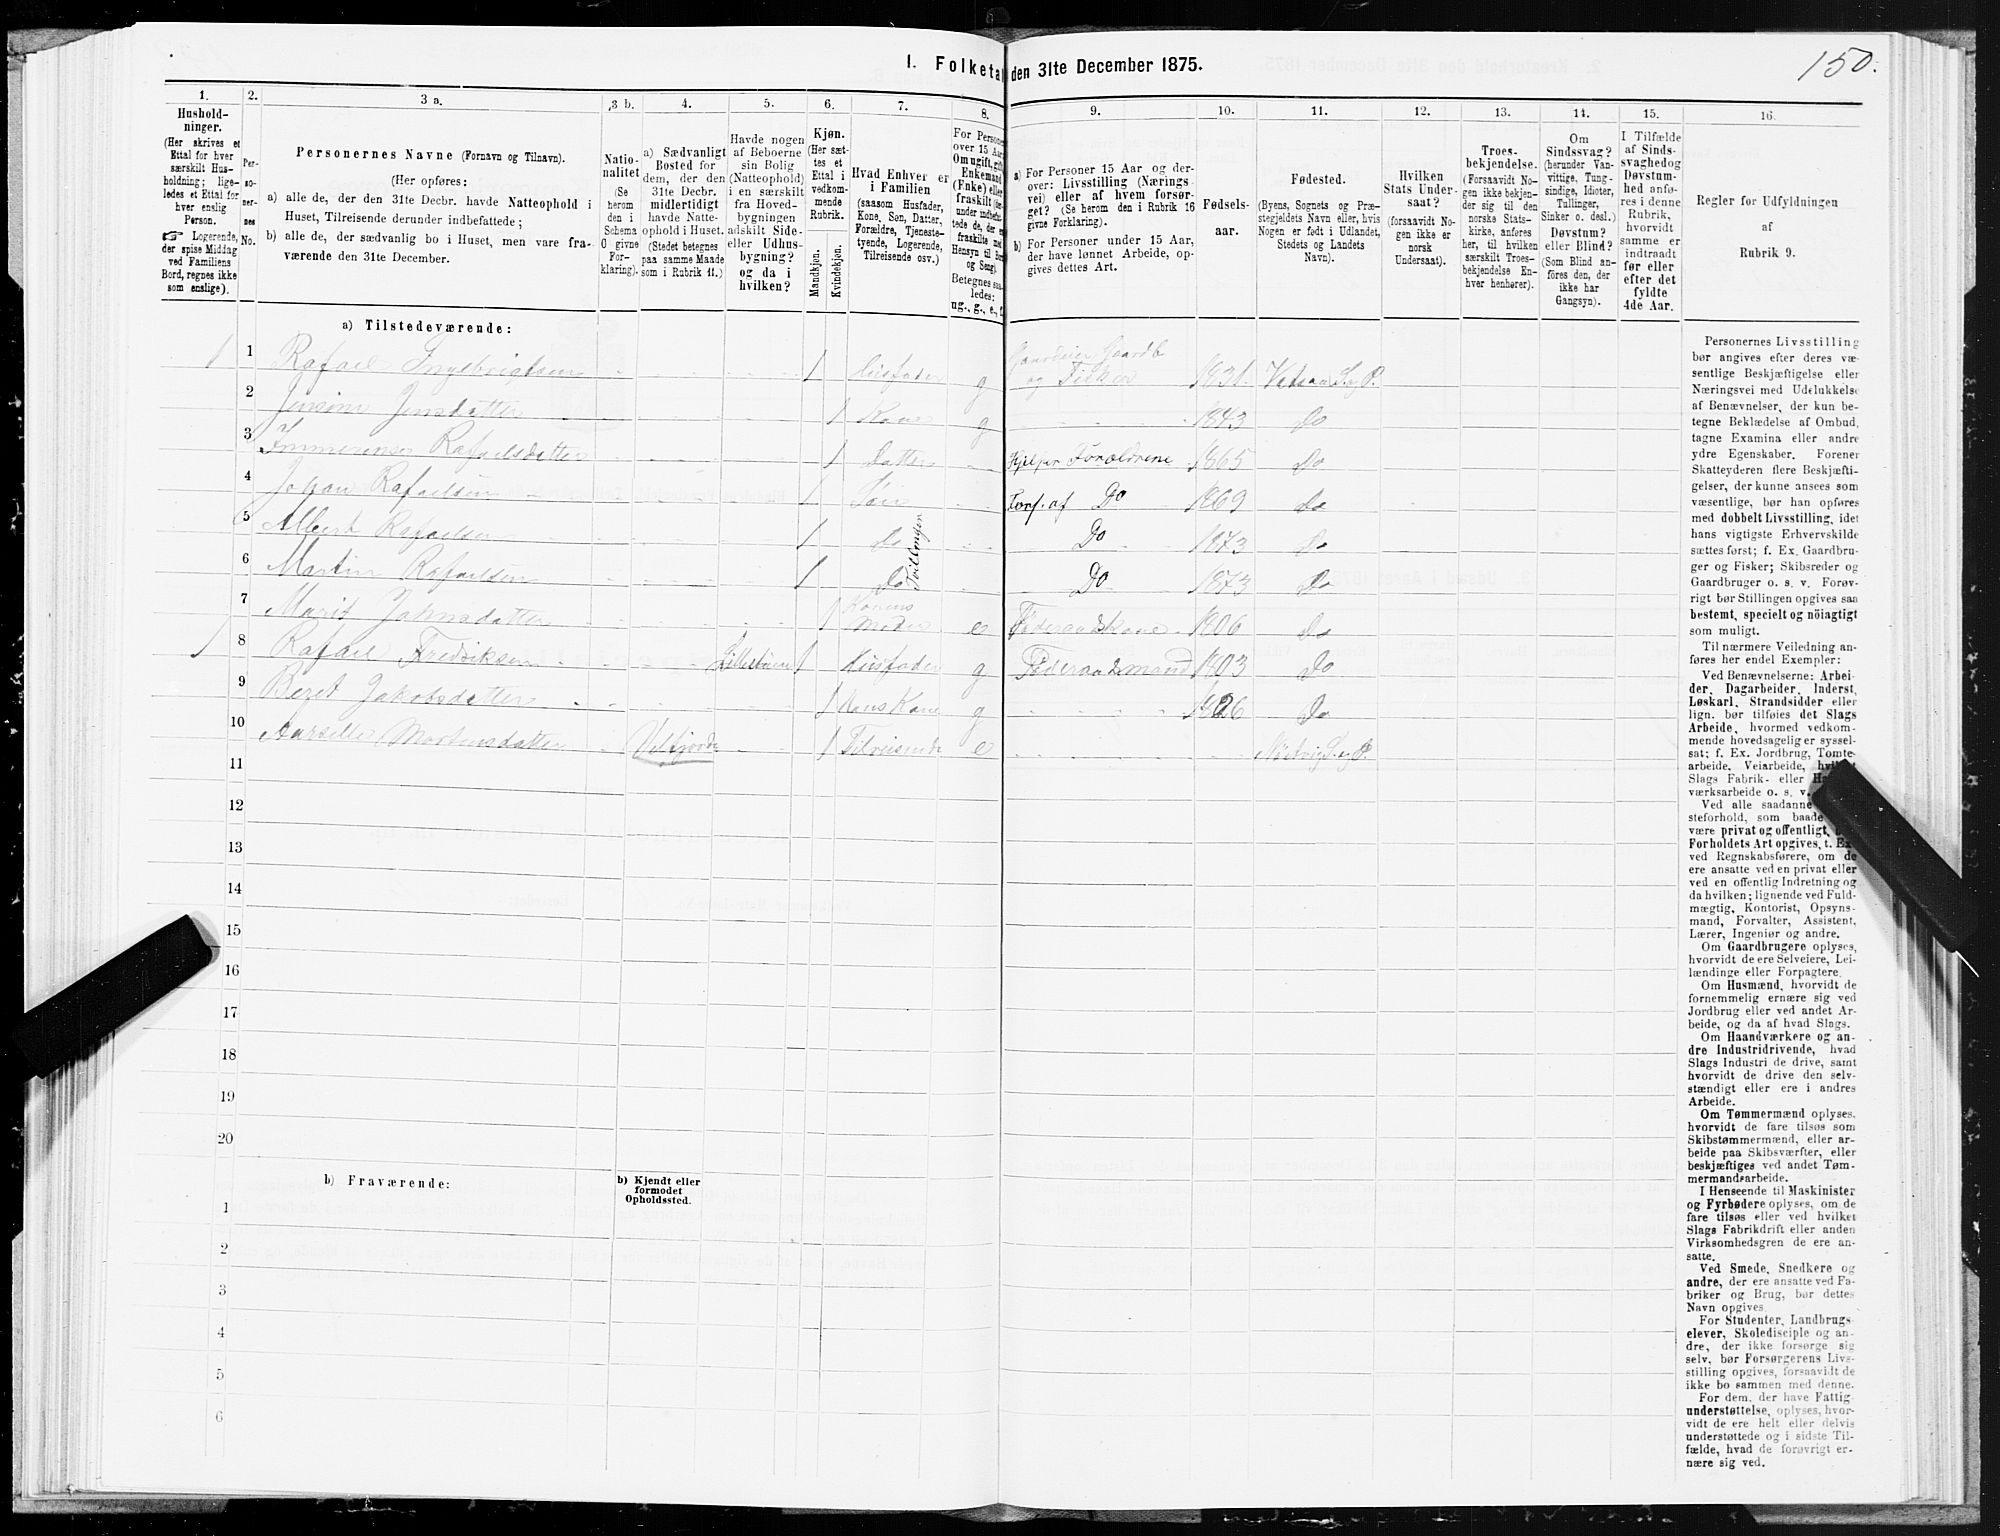 150.
1. Folketal den 31te December 1875.
1. 2. 3 a. 3 b. 4. 5. 6. 7. 8. 9. 10. 11. 12. 13. 14. 15. 16.
Hushold-
ninger.
(Her skrives et
Ettal for hver
særskilt Hus-
holdning; lige-
ledes et Ettal for
hver enslig
Person.
☞ Logerende,
der spise Middag
ved Familiens
Bord, regnes ikke
som enslige).
Per-
so-
ner-
nes
No.
Personernes Navne (Fornavn og Tilnavn).
(Her opføres:
a) alle de, der den 31te Decbr. havde Natteophold i
Huset, Tilreisende derunder indbefattede;
b) alle de, der sædvanlig bo i Huset, men vare fra-
værende den 31te December.
Natio-
nalitet
(Se
herom
den i
Schema
6 givne
For-
klaring).
a) Sædvanligt
Bosted for
dem, der den
31te Decbr.
midlertidigt
havde Natte-
ophold i Huset.
(Stedet betegnes
paa samme Maade
som i Rubrik 11.)
Havde nogen
af Beboerne
sin Bolig
(Natteophold)
i en særskilt
fra Hoved-
bygningen
adskilt Side-
eller Udhus-
bygning?
og da i
hvilken?
Kjøn.
(Her sæt-
tes et
Ettal i
vedkom-
mende
Rubrik.
Mandkjøn.
Kvindekjøn.
Hvad Enhver er
i Familien
(saasom Husfader,
Kone, Søn, Datter,
Forældre, Tjeneste-
tyende, Logerende,
Tilreisende osv.)
For Personer
over 15 Aar:
Om ugift, gift,
Enkemand
(Enke) eller
fraskilt
Betegnes saa-
ledes:
ug., g., e., f.
a) For Personer 15 Aar og der-
over: Livsstilling (Nærings-
vei) eller af hvem forsør-
get? (Se herom den i Rubrik 16
givne Forklaring).
b) For Personer under 15 Aar,
der have lønnet Arbeide, op-
gives dettes Art.
Fødsels-
aar.
Fødested.
(Byens, Sognets og Præ-
stegjeldets Navn eller, hvis
Nogen er født i Udlandet,
Stedets og Landets
Navn).
Hvilken
Stats Under-
saat?
(forsaavidt No-
gen ikke er
norsk
Undersaat).
Troes-
bekjendelse.
(Forsaavidt No-
gen ikke bekjen-
der sig til den
norske Stats-
kirke, anføres
her, til hvilken
særskilt Troes-
bekjendelse En-
hver henhører).
Om
Sindssvag?
(herunder Van-
vittige, Tung-
sindige, Idioter,
Tullinger,
Sinker o. desl.)
Døvstum?
eller Blind?
(Som Blind an-
føres den, der
ikke har
Gangsyn).
I Tilfælde
af Sinds-
svaghed og
Døvstum-
hed anfø-
res i denne
Rubrik,
hvorvidt
samme er
indtraadt
før eller
efter det
fyldte
4de Aar.
Regler for Udfyldningen
af
Rubrik 9.
a) Tilstedeværende:
1 1 Rafael Ingebrigtsen 1 Husfader g Gaardeier Gaardb. og Fisker 1831. Vefsen S. og P.
2 Jensine Jensdatter 1 Kone g 1843 Do
3 Immerense Rafaelsdatter 1 Datter Hjelper Forældrene 1865 Do
4 Johan Rafaelsen 1 Søn Fors. af Do 1869 Do
5 Albert Rafaelsen 1 Do Tvillinger Do 1873 Do
6 Martin Rafaelsen 1 Do Do 1873 Do
7 Marit Johnsdatter 1 Konens Moder e Føderaadskone 1806 Do
1 8 Rafael Fredriksen Lillestuen 1 Husfader g Føderaadsmand 1803 Do
9 Beret Jakobsdatter 1 Hans Kone g 1826 Do
10 Mortensdatter Velfjorden 1 Tilreisende e S. og P.
11
12
13
14
15
16
17
18
19
20
b) Fraværende:
b) Kjendt eller
formodet
Opholdssted.
1
2
3
4
5
6
Personernes Livsstilling
bør angives efter deres væ-
sentlige Beskjæftigelse eller
Næringsvei med Udelukkelse
af Benævnelser, der kun be-
tegne Beklædelse af Ombud,
tagne Examina eller andre
ydre Egenskaber. Forener
Skatteyderen flere Beskjæfti-
gelser, der kunne ansees som
væsentlige, bør han opføres
med dobbelt Livsstilling, idet
hans vigtigste Erhvervskilde
sættes først; f. Ex. Gaardbru-
ger og Fisker; Skibsreder og
Gaardbruger o. s. v. Forøv-
rigt bør Stillingen opgives saa
bestemt, specielt og nöiagtigt
som muligt.
Til nærmere Veiledning an-
føres her endel Exempler:
Ved Benævnelserne: Arbei-
der, Dagarbeider, Inderst,
Løskarl, Strandsidder eller
lign. bør tilføies det Slags
Arbeide, hvormed vedkom-
mende hovedsagelig er syssel-
sat; f. Ex. Jordbrug, Tomte-
arbeide, Veiarbeide, hvilket
Slags Fabrik- eller
værksarbeide o. s. v.
Ved alle saadanne
steforhold, som baade
være privat og offentligt,
Forholdets Art opgives, t. Ex.
ved Regnskabsførere, om de
ere ansatte ved en privat eller
ved en offentlig Indretning og
da hvilken; lignende ved Fuld-
mægtig, Kontorist, Opsyns-
mand, Forvalter, Assistent,
Lærer, Ingeniør og andre.
Om Gaardbrugere oplyses,
hvorvidt de ere Selveiere, Lei-
lændinge eller Forpagtere.
Om Husmænd, hvorvidt de
fornemmelig ernære sig ved
Jordbrug eller ved andet Ar-
beide, og da af hvad Slags.
Om Haandværkere og an-
dre Industridrivende, hvad
Slags Industri de drive, samt
hvorvidt de drive den selv-
stændigt eller ere i andres
Arbeide.
Om Tømmermænd oplyses,
hvorvidt de fare tilsøs som
Skibstømmermænd, eller ar-
beide paa Skibsværfter, eller
beskjæftiges ved andet Tøm-
mermandsarbeide.
I Henseende til Maskinister
og Fyrbødere oplyses, om de
fare tilsøs eller ved hvilket
Slags Fabrikdrift eller anden
Virksomhedsgren de ere an-
satte.
Ved Smede, Snedkere og
andre, der ere ansatte ved Fa-
briker og Brug, bør dettes
Navn opgives.
For Studenter, Landbrugs-
elever, Skoledisciple og an-
dre, der ikke forsørge sig
selv, bør Forsørgerens Livs-
stilling opgives, forsaavidt de
ikke bo sammen med denne.
For dem, der have Fattig-
understøttelse, oplyses, hvor-
vidt de ere helt eller delvis
understøttede og i sidste Til-
fælde, hvad de forøvrigt er-
nære sig ved.